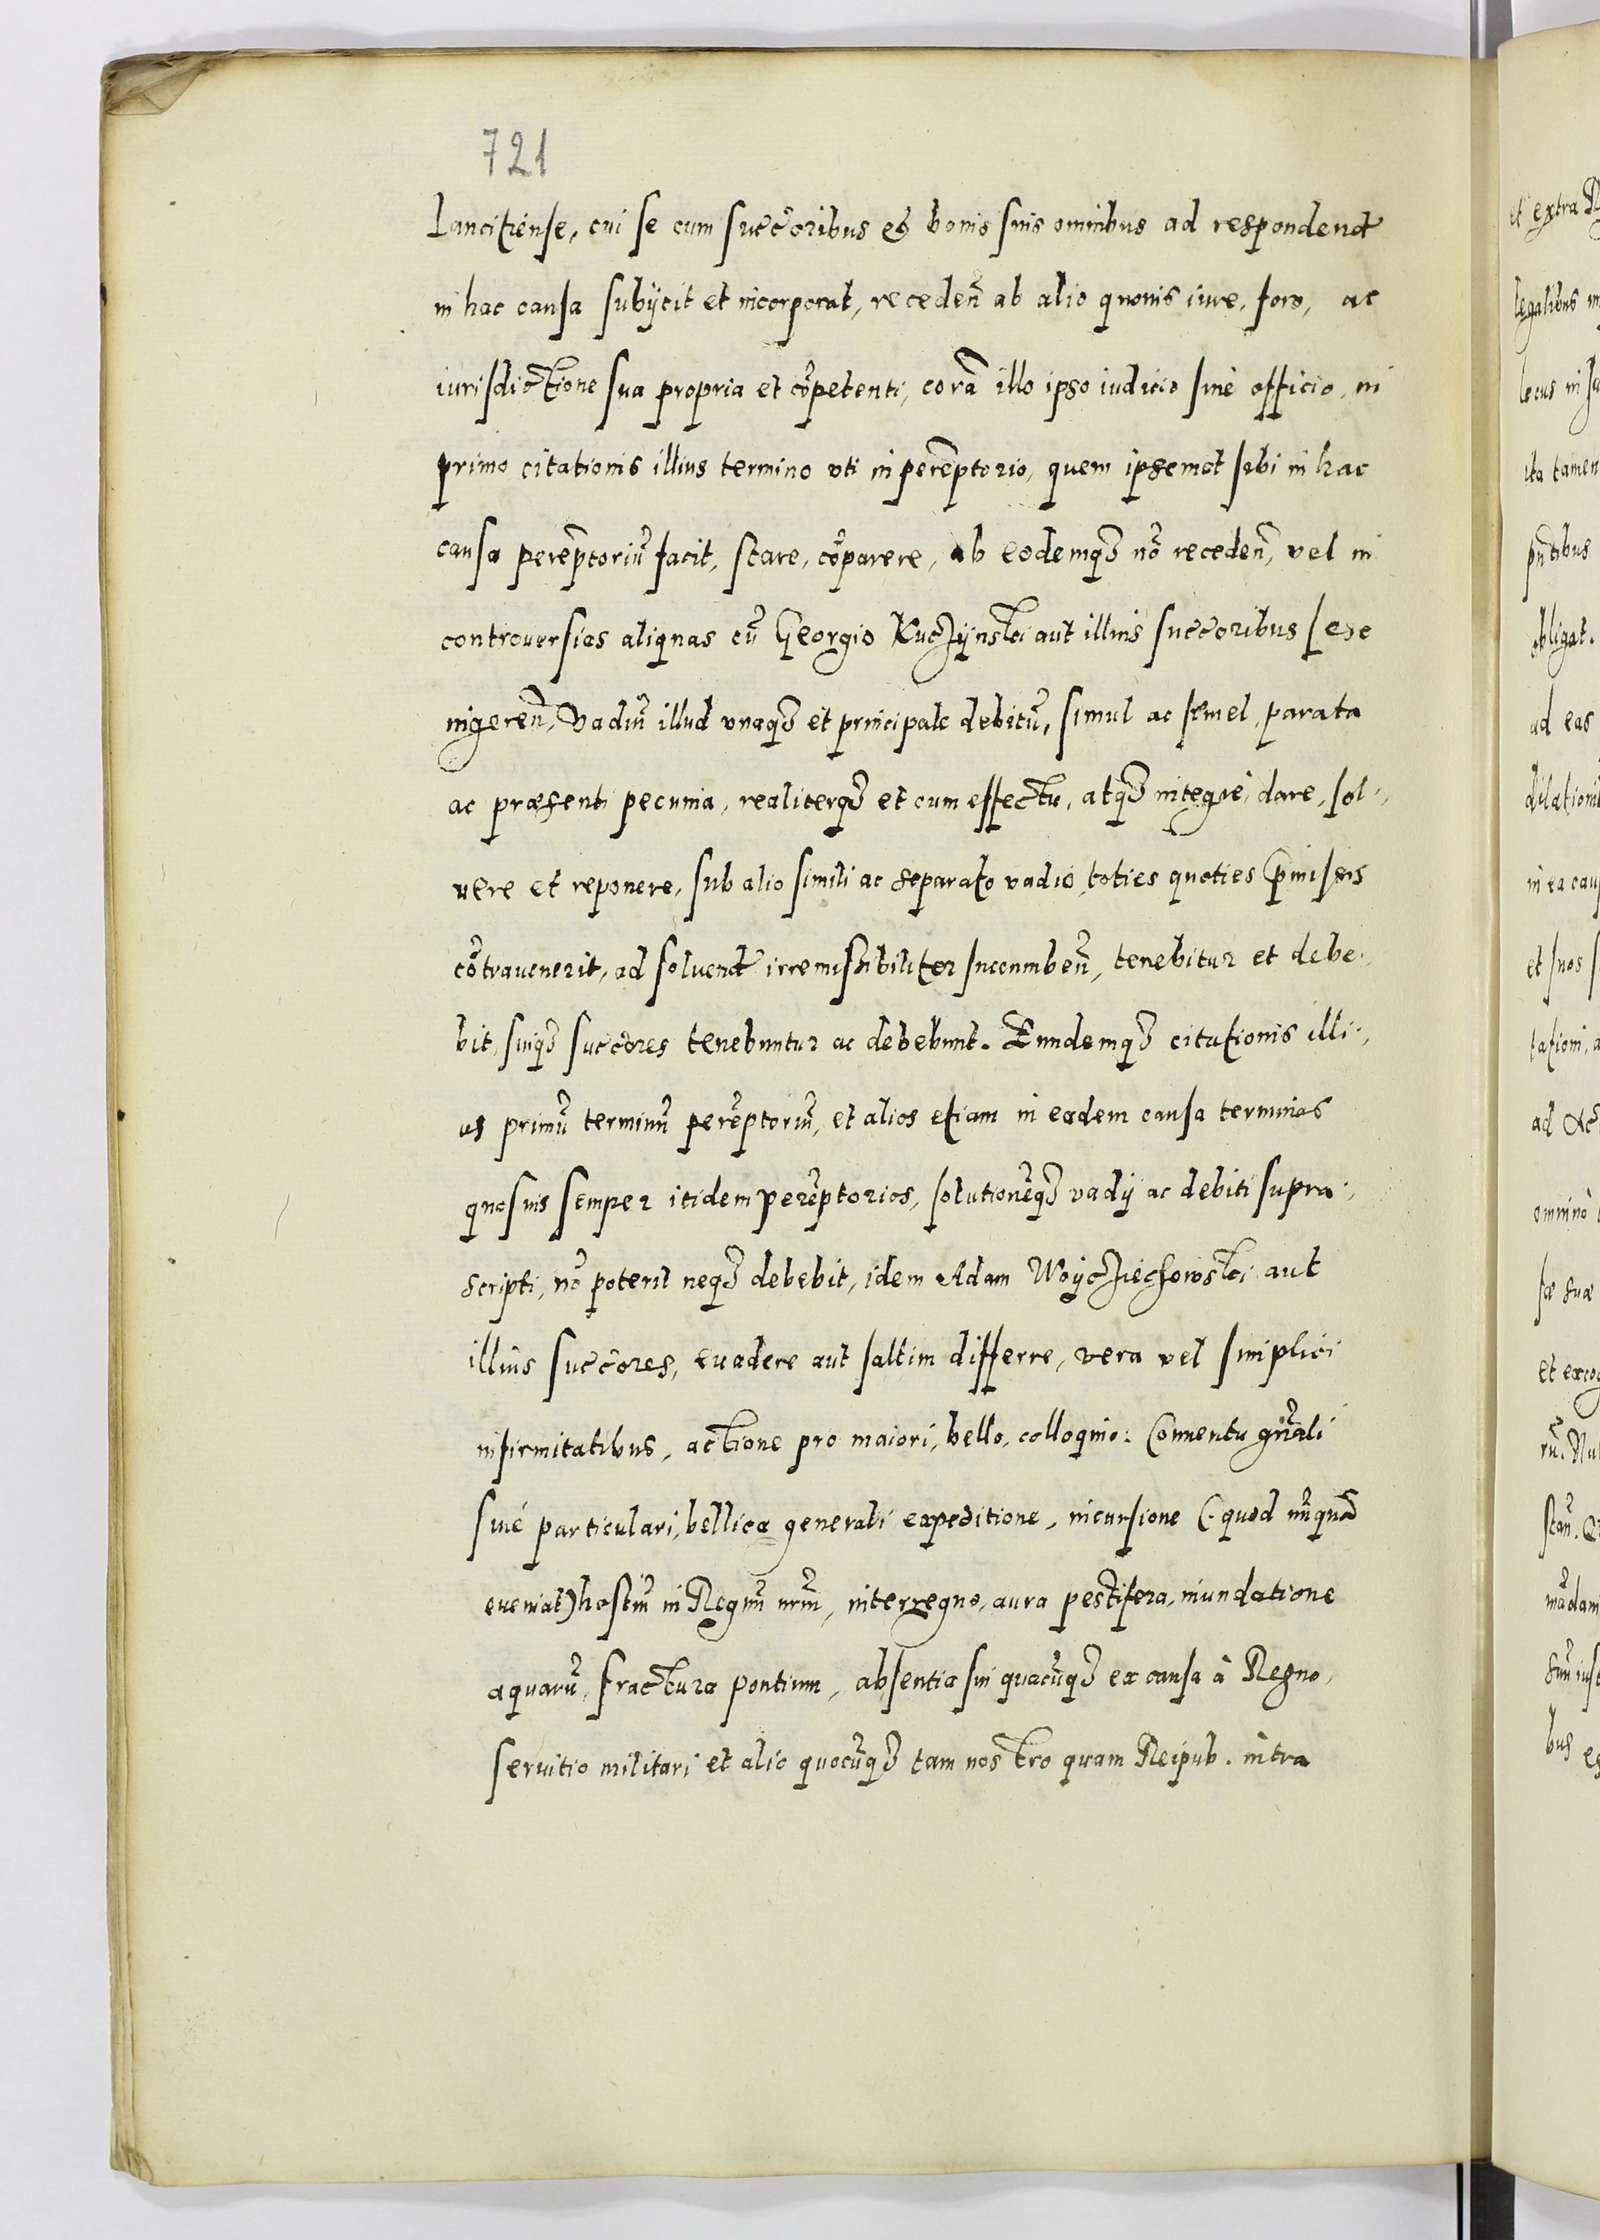 721
Lancitiense, cui se cum succ̃oribus et bonis suis omnibus ad respondend̃
in hac causa subijcit et incorporat, recedeñ ab alio quouis iure, foro, ac
iurisdictione sua propria et cõpetenti, corã illo ipso iudicio siue officio, in
primo citationis illius termino vti in perẽptorio, quem ipsemet sibi in hac
causa perẽptoriũ facit, stare, cõparere, ab eodemq́ꝫ nõ recedeñ, vel in
controuersias aliquas cũ Georgio Kuczÿnski aut illius succ̃oribus sese
ingereñ, Vadiũ illud vnaqꝫ et principale debitũ, simul ac semel, parata
ac præsenti pecunia, realiterqꝫ et cum effectu, atqꝫ integrè, dare, sol-
uere et reponere, sub alio simili ac separato vadio, toties quoties
cõtrauenerit, ad soluend̃ irremissibiliter incumbeñ, tenebitur et debe-
bit, suiqꝫ succ̃ores tenebuntur ac debebunt. Eundemqꝫ citationis illi-
us primũ terminũ perẽptoriũ, et alios etiam in eadem causa terminos
quosuis semper itidem perẽptorios, solutionẽqꝫ vadij ac debiti supra-
scripti, nõ poterit neqꝫ debebit, idem Adam Woÿcziechowski aut
illius succ̃ores, euadere aut saltim differre, vera vel simplici
infirmitatibus, actione pro maiori, bello, colloquio: Conuentu gñali
siué particulari, bellica generali expeditione, incursione (quod nũquã
eueniat) hostiũ in Regnũ nr̃m, interregno, aura pestifera, inundatione
aquarũ, fractura pontium, absentia sui quacũqꝫ ex causa à Regno,
seruitio militari et alio quocũqꝫ tam nostro quam Reipub. intra
et extra
legalibus
locus in
ita tamen
pñtibus
obligat.
ad eas
in ea cau
et suos
tationi, a
ad Ac
omninò
sæ suæ
bus